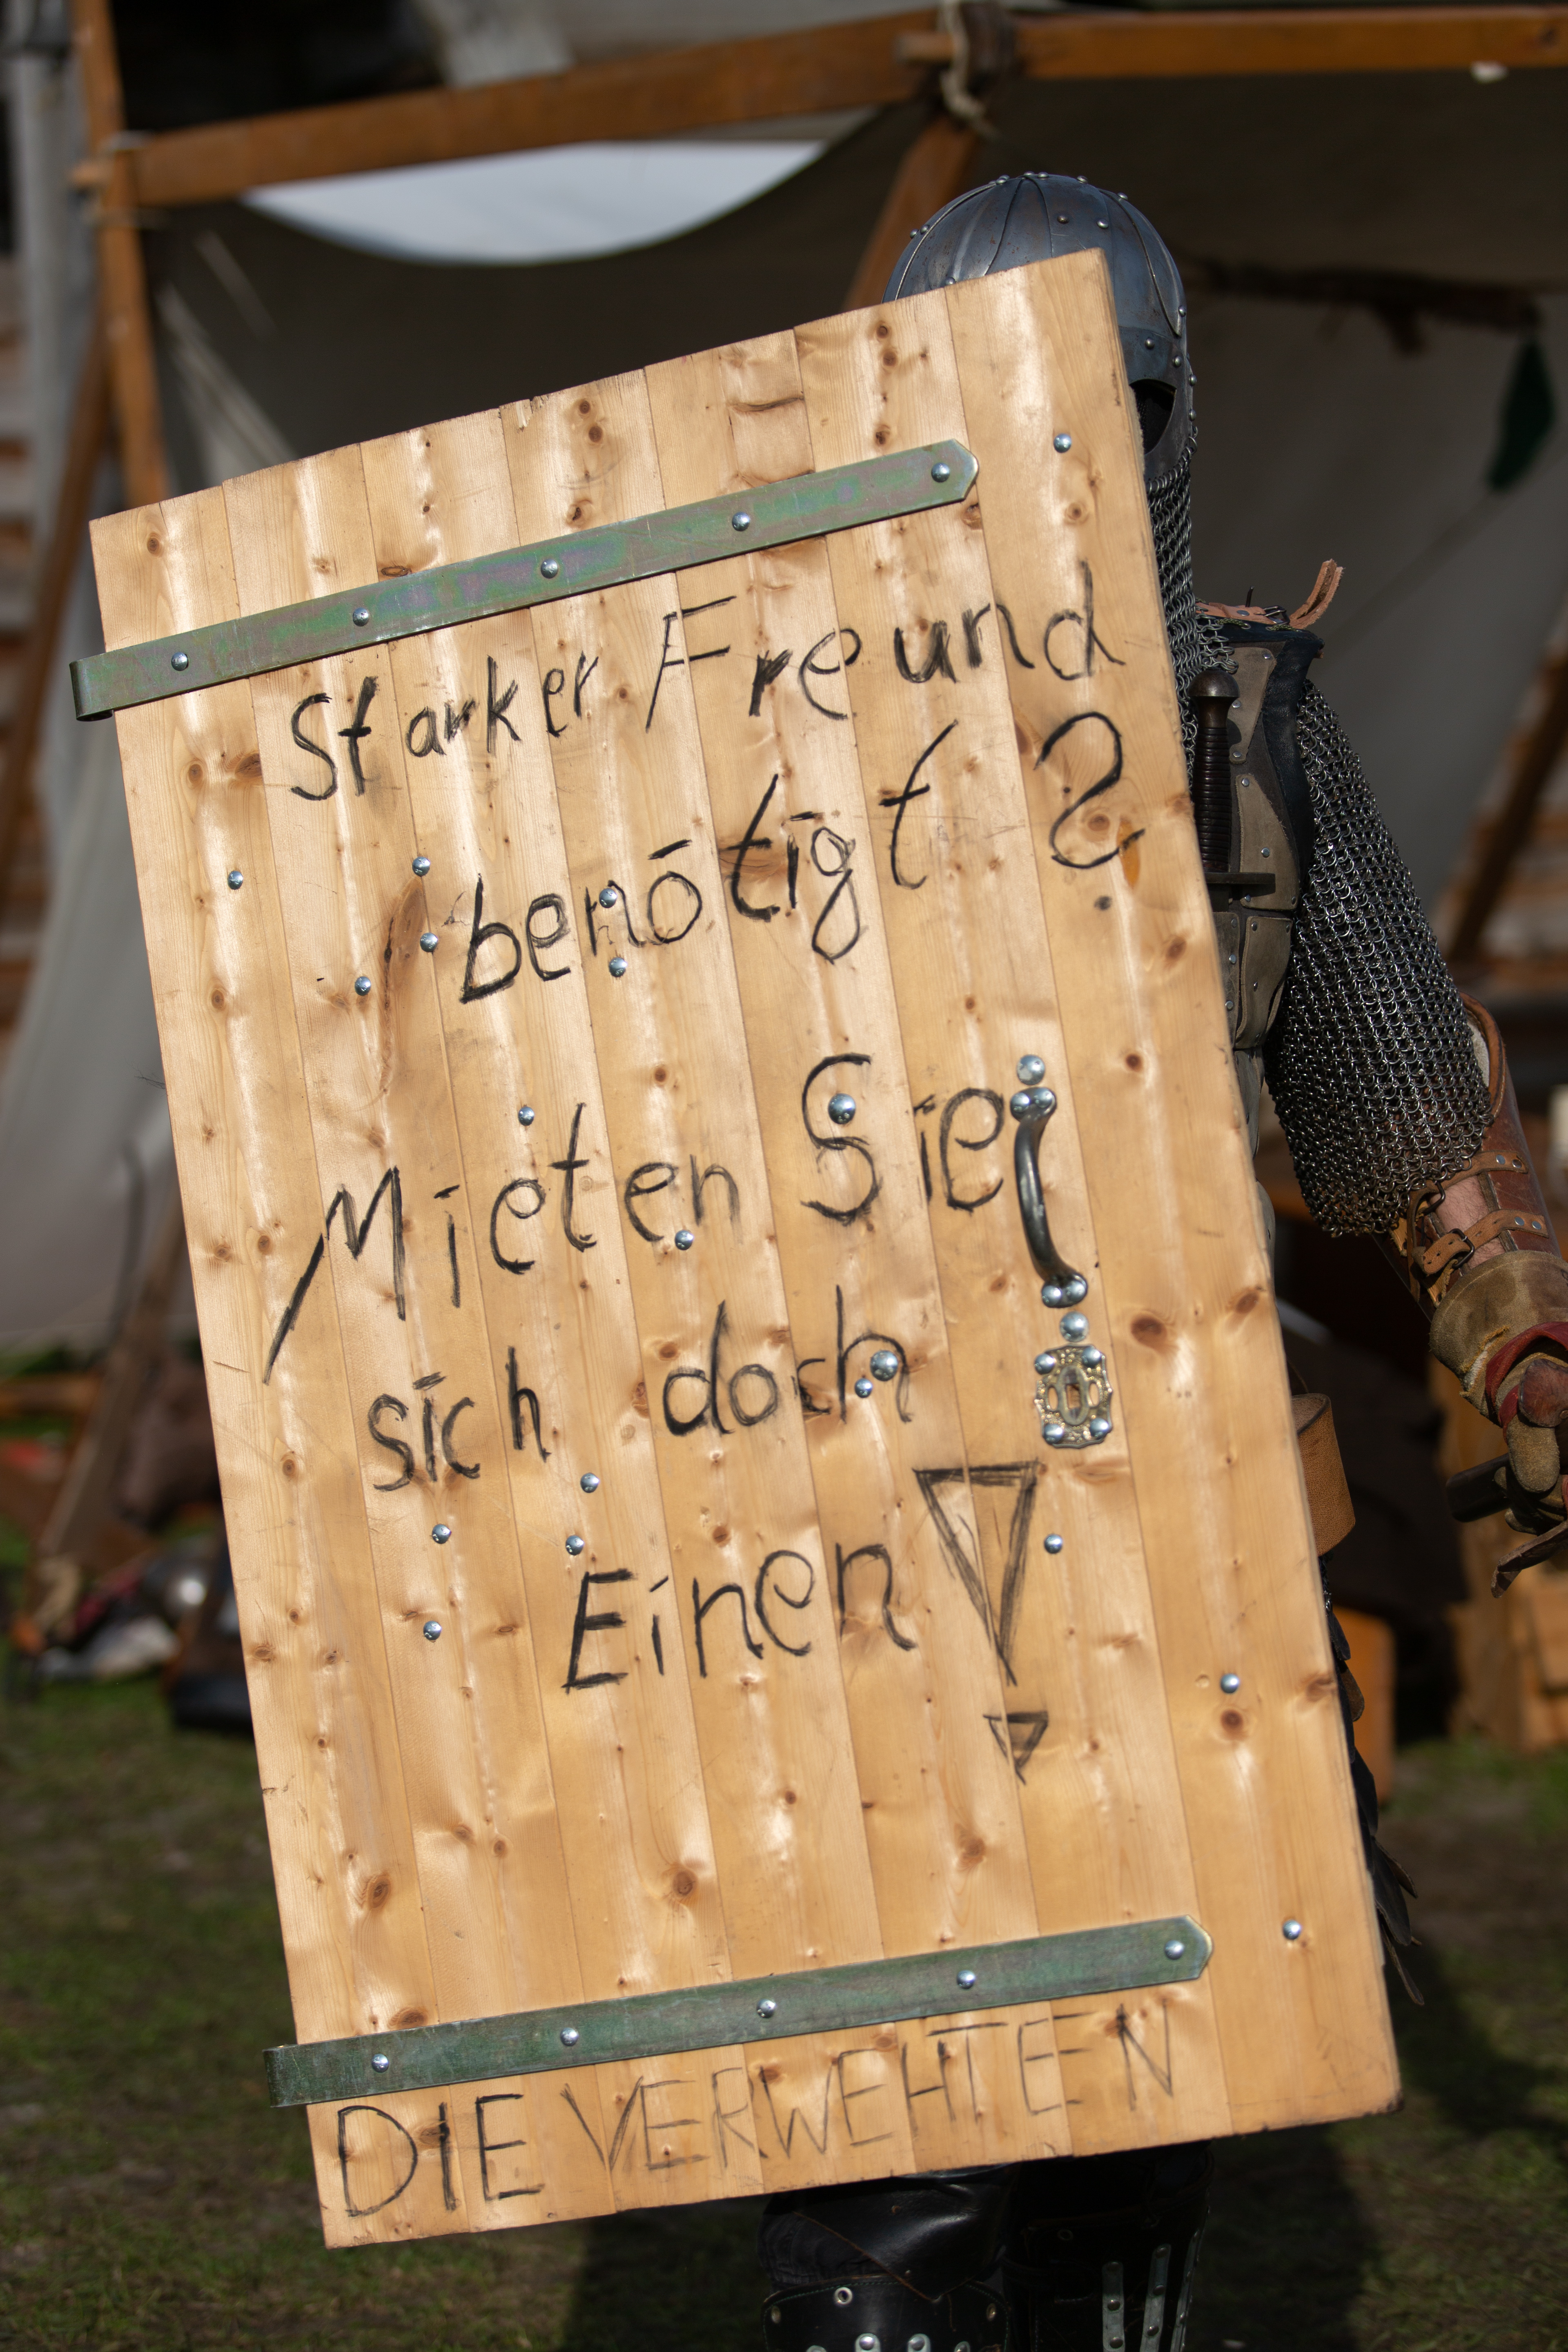 Starker Freund
benötigt?
Mieten Sie
sich doch
Einen!
DIE VERWEHTEN